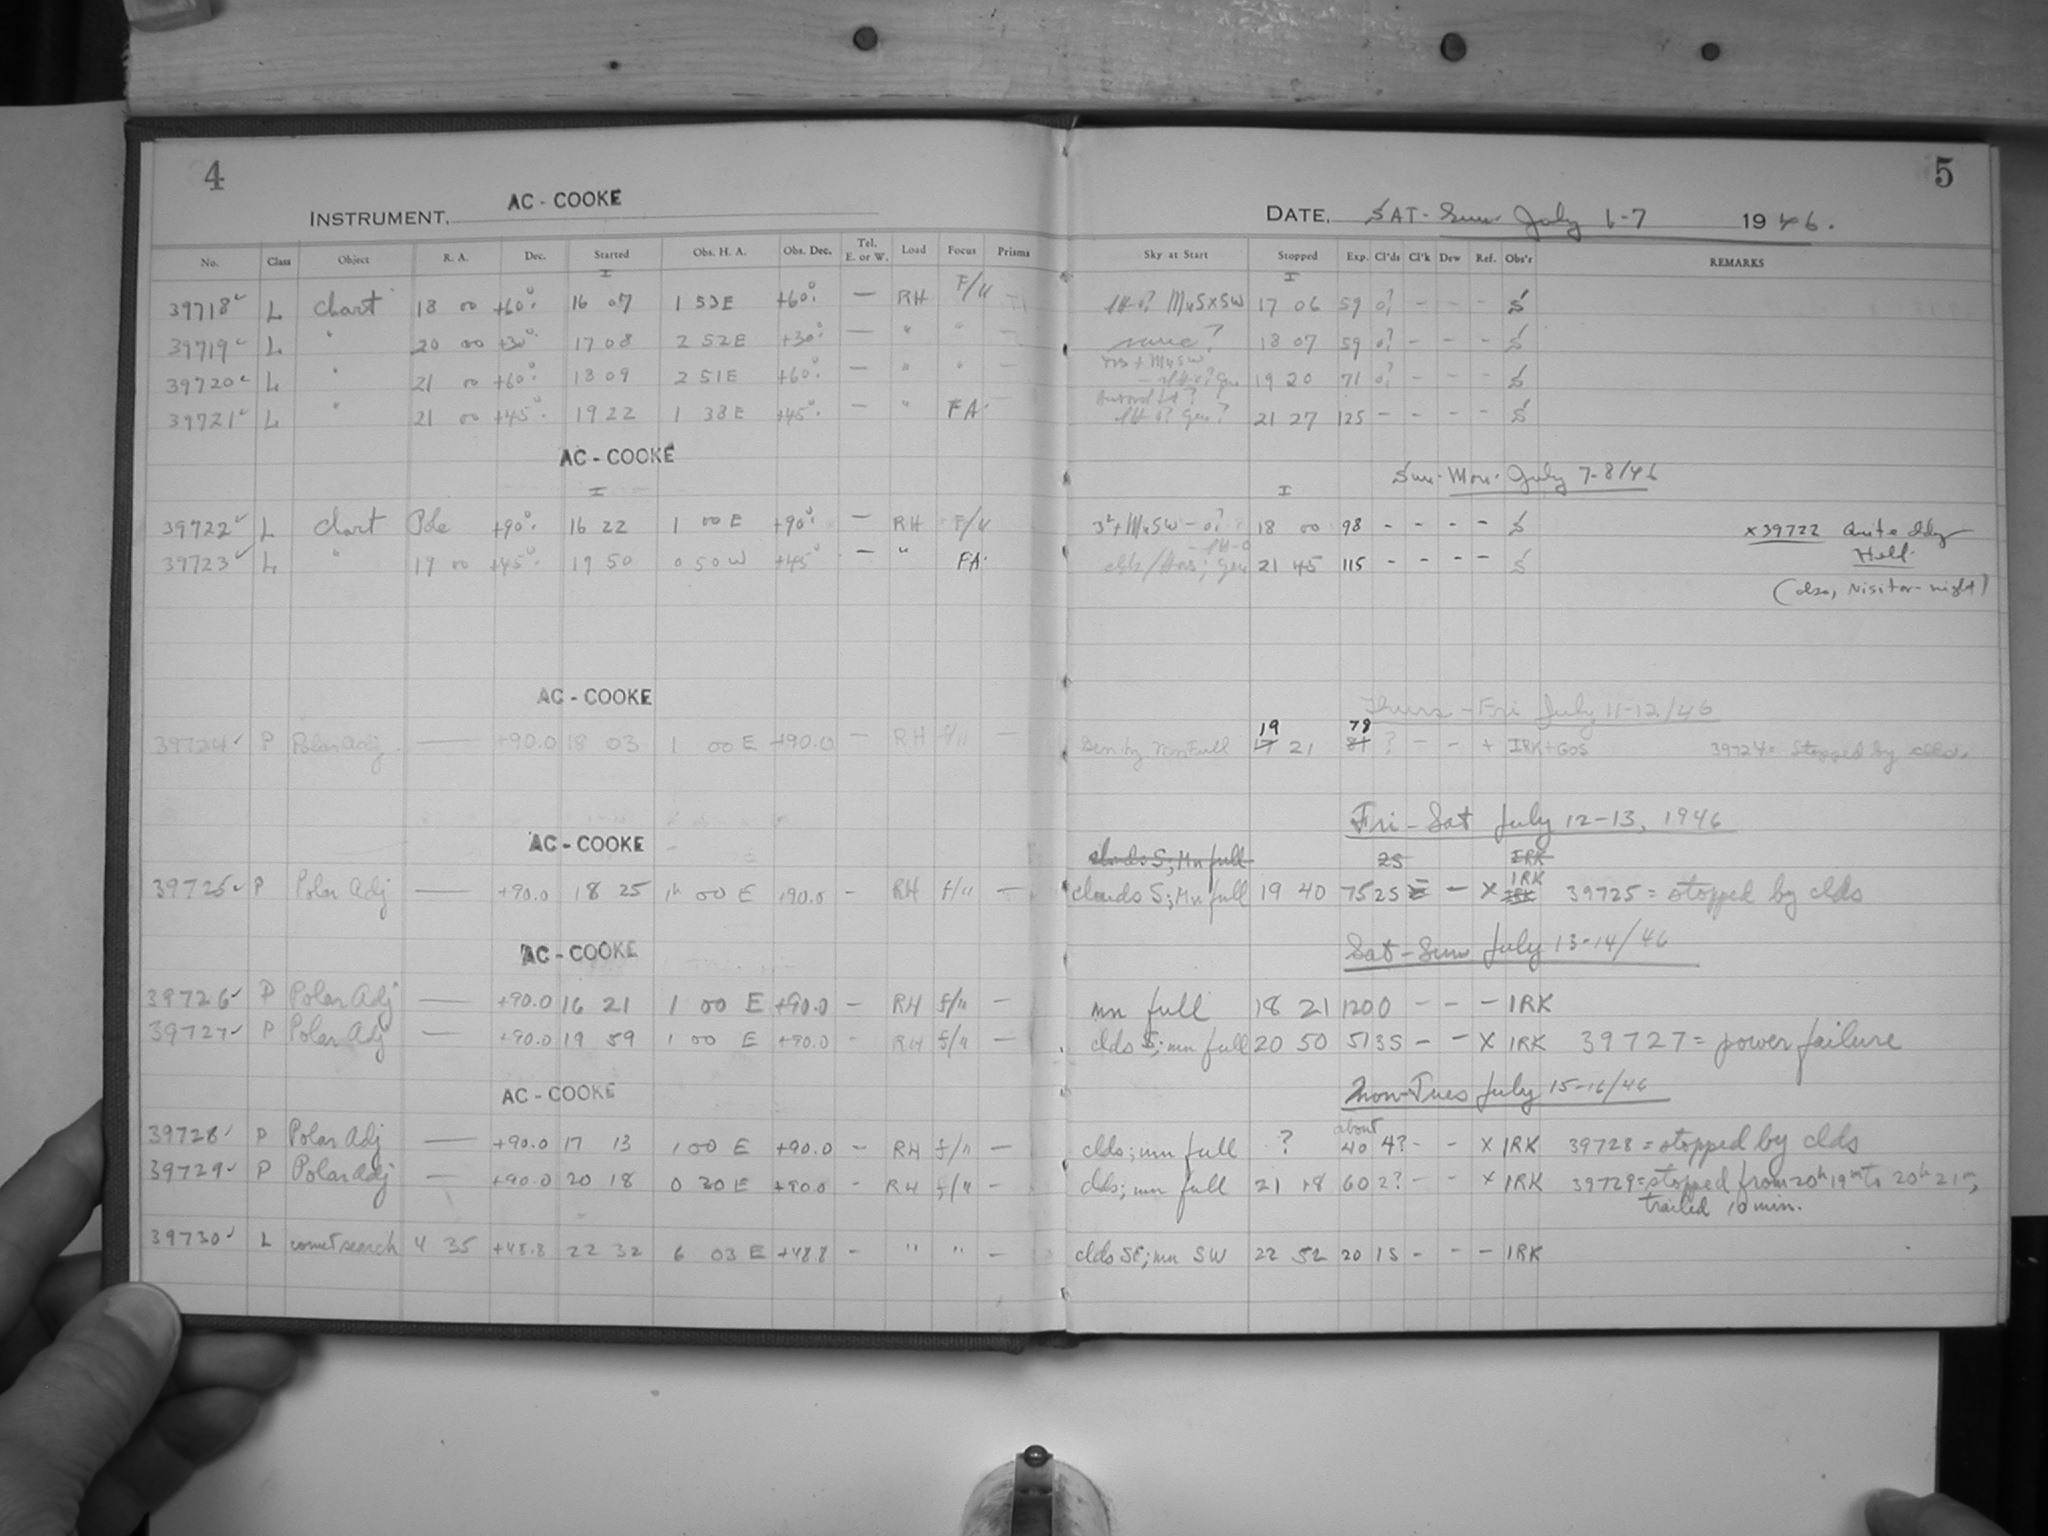 4
INSTRUMENT, AC - COOKE
No. Class Object R. A. Dec. Started Obs. H. A. Obs. Dec. Tel. E. or W. Load Focus Prisms
39718 L Chart 18 00 +60° 16 07 1 53 E +60° — RH F/11
39719 L " 20 00 +30° 17 08 2 52 E +30° — " " —
39720 L " 21 00 +60° 18 09 2 51 E +60° — " " —
39721 L " 21 00 +45° 19 22 1 38 E +45° — " FA.
AC - COOKE
39722 L Chart Pole +90° 16 22 1 00 E +90° — RH F/11
39723 L " 19 00 +45° 19 50 0 50 W +45° — " FA.
AC - COOKE
39724 P Polar Adj. — +90.0 18 03 1 00 E +90.0 — RH f/11 —
AC - COOKE
39725 P Polar Adj — +90.0 18 25 1h 00 E +90.0 - RH f/11 —
AC - COOKE
39726 P Polar Adj — +90.0 16 21 1 00 E +90.0 - RH f/11 —
39727 P Polar Adj — +90.0 19 59 1 00 E +90.0 - RH f/11 —
AC - COOKE
39728 P Polar Adj — +90.0 17 13 1 00 E +90.0 - RH f/11 —
39729 P Polar Adj — +90.0 20 18 0 30 E +90.0 - RH f/11 —
39730 L comet search 4 35 +48.8 22 32 6 03 E +48.8 - " " —
5
DATE, SAT - Sun. July 6-7 1946.
Sky at Start Stopped Exp. Cl'ds Cl'k Dew Ref. Obs'r REMARKS
17 06 59 0? - - - S
same? 18 07 59 0? - - - S
19 20 71 0? - - - S
21 27 125 - - - - S
Sun-Mon. July 7-8/46
18 00 98 - - - - S x39722 Quite
Held
21 45 115 - - - - S
(also, Visitor-night)
Thurs - Fri July 11-12/46
19 78
Mn Full 17 21 81 ? - - + IRK+GOS 39724 = Stopped by clds.
Fri - Sat July 12-13, 1946
clouds S; Mn full 25 IRK
IRK
clouds S; Mn full 19 40 75 2S - X IRK 39725 = stopped by clds
Sat - Sun July 13-14/46
mn full 18 21 120 0 - - - IRK
clds S; mn full 20 50 51 3S - - X IRK 39727 = power failure
Mon-Tues July 15-16/46
about
clds; mn full ? 40 4? - - X IRK 39728 = stopped by clds
clds; mn full 21 18 60 2? - - X IRK 39729 = stopped from 20h 19m to 20h 21m,
trailed 10 min.
clds SE; mn SW 22 52 20 1S - - - IRK